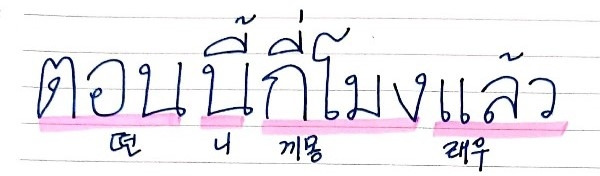 ตอนนี้กี่โมงแล้ว
떤 니 끼몽 래우